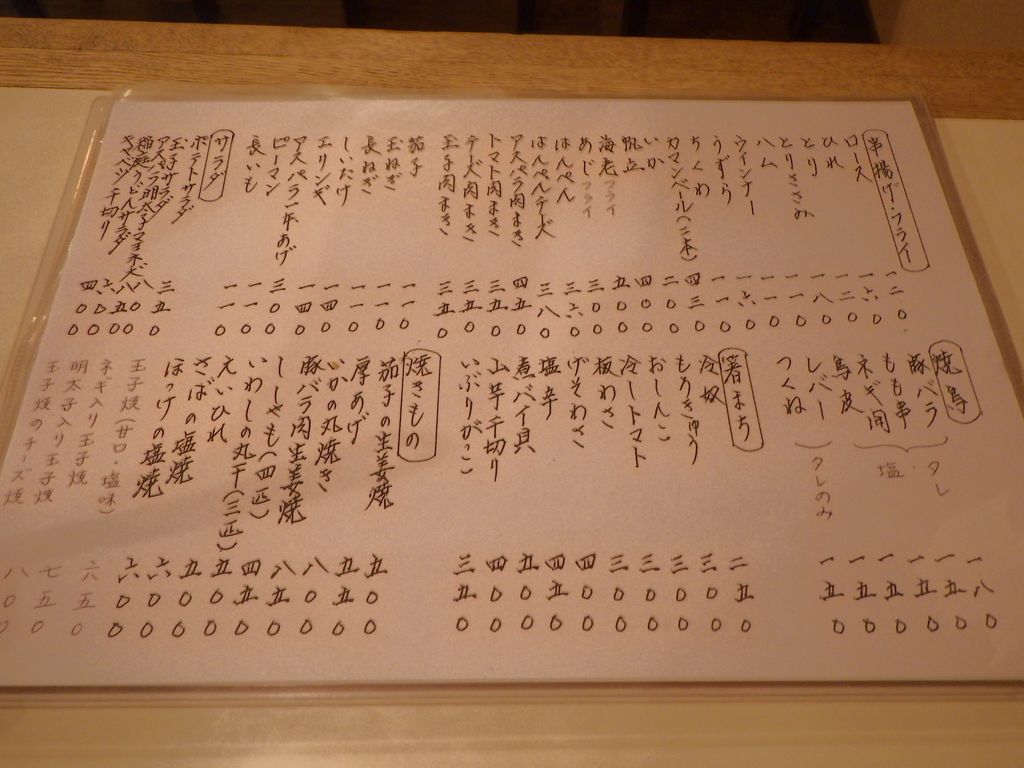 串揚げ・フライ
ロース 一二0
ひれ 一六0
とり 一二0
とりささみ 一八0
ハム 一一0
ウインナー 一一0
うずら 一六0
ちくわ 一一0
カマンベール(二本) 四三0
いか 二00
帆立 四00
海老フライ 五00
あじフライ 三00
はんぺん 三六0
はんぺんチーズ 三八0
アスパラ肉まき 四五0
トマト肉まき 三五0
チーズ肉まき 三五0
玉子肉まき 三五0
茄子 一一0
玉ねぎ 一一0
長ねぎ 一一0
しいたけ 一四0
エリンギ 一四0
アスパラ一本あげ 三00
ピーマン 一一0
長いも 一一0
サラダ
ポテトサラダ 三五0
玉子サラダ 八00
アスパラ明太子マヨネーズ 八五0
稲庭うどんサラダ 六00
キャベツ千切り 四00
焼鳥
豚バラ 一八0
もも串 一五0
ネギ間 一五0
鳥皮 一五0
タレ・塩
レバー 一五0
つくね 一五0
タレのみ
箸まち
冷奴 二五0
もろきゅう 三00
おしんこ 三00
冷しトマト 三00
板わさ 三00
げそわさ 四00
塩辛 四五0
煮バイ貝 五00
山芋千切り 四00
いぶりがっこ 三五0
焼きもの
茄子の生姜焼 五00
厚あげ 五五0
いかの丸焼き 八00
豚バラ肉生姜焼 八五0
ししゃも(四匹) 四五0
いわしの丸干(三匹) 五00
えいひれ 五00
さばの塩焼 六00
ほっけの塩焼 六00
玉子焼(甘口・塩味)
ネギ入り玉子焼 六五0
明太子入り玉子焼 七五0
玉子焼のチーズ焼 八00